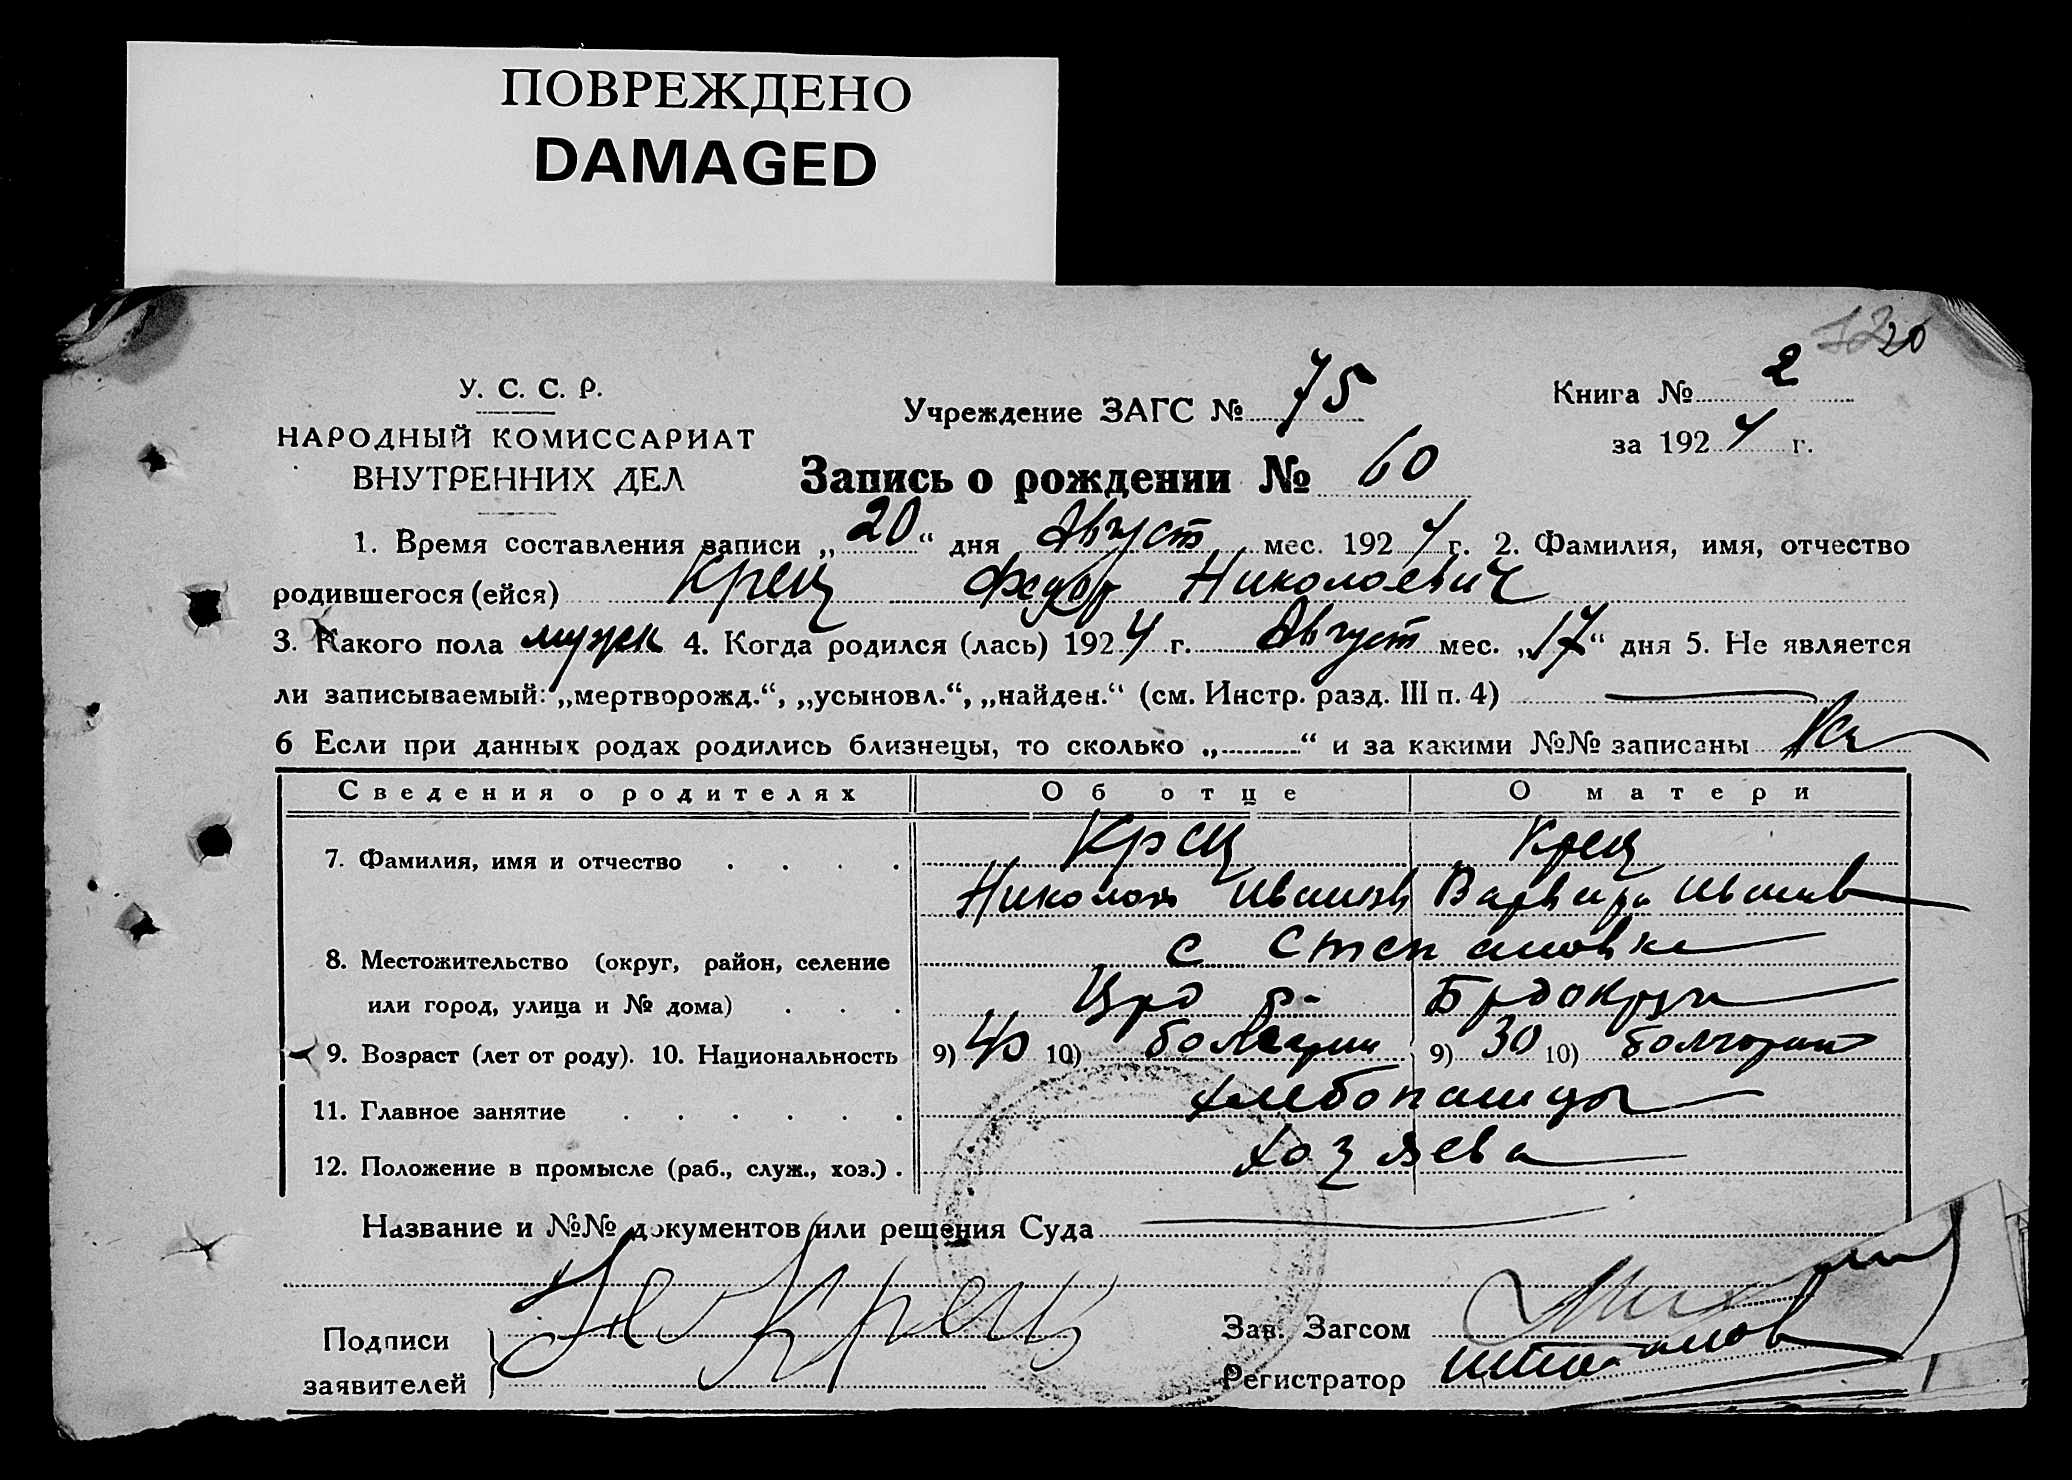 ПОВРЕЖДЕНО
DAMAGED
20
У. С. С. Р.
НАРОДНЫЙ КОМИССАРИАТ
ВНУТРЕННИХ ДЕЛ
Учреждение ЗАГС № 75
Книга № 2
за 1924 г.
Запись о рождении № 60
1. Время составления записи „20“ дня Август мес. 1924 г. 2. Фамилия, имя, отчество
родившегося (ейся) Крец Федор Николаевич
3. Какого пола мужск 4. Когда родился (лась) 1924 г. Август мес. „17“ дня 5. Не является
ли записываемый: „мертворожд.“, „усыновл.“, „найден.“ (см. Инстр. разд. III п. 4)
6 Если при данных родах родились близнецы, то сколько „..........“ и за какими №№ записаны
Сведения о родителях Об отце О матери
7. Фамилия, имя и отчество Крец Крец
Николай Иванов Варвара Иванов
8. Местожительство (округ, район, селение с Степановка
или город, улица и № дома)
9. Возраст (лет от роду). 10. Национальность 9) 40 10) болгарин 9) 30 10) болгарин
11. Главное занятие хлебопашцы
12. Положение в промысле (раб., служ., хоз.) хозяева
Название и №№ документов или решения Суда
Подписи
заявителей
Н Крец
Зав. Загсом
Регистратор